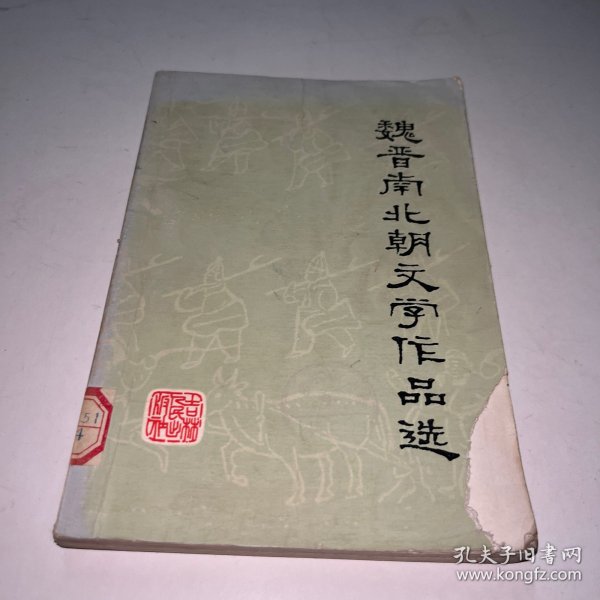 魏晋南北朝文学作品选
吉林人民出版社
51
4
孔夫子旧书网
www.kongfz.com